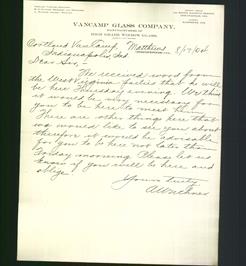 VANCAMP GLASS COMPANY,
MANUFACTURERS OF
HIGH GRADE WINDOW GLASS.
Cortland VanCamp, Matthews, 8/17/04
Indianapolis, Ind
Dear Sir,-
The received word from
the West Virginia parties that he will
be here Thursday evening. We think
it would be very necessary for
you to be here to meet him.
There are other things here that
we would like to see you about
therefore it would be advisable
for you to be here not later than
Friday morning. Please let us
know if you will be here and
oblige.
Yours truly